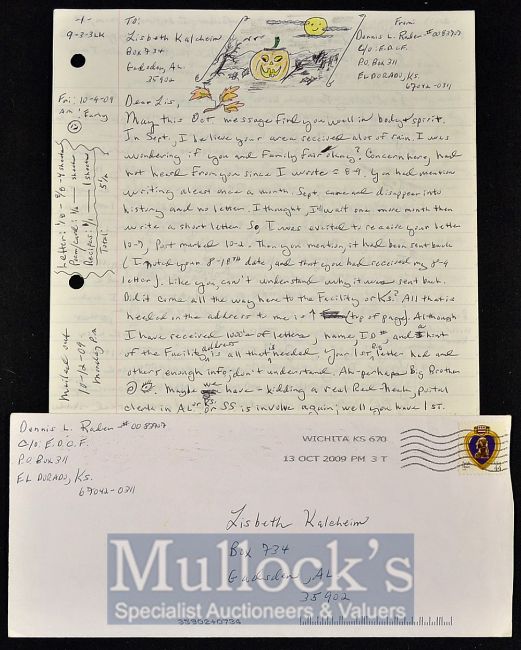 -1-
9-3-3LK
To:
Lisbeth Kalcheim
Box 734
Gadsden, AL.
35902
From
Dennis L. Rader #0083707
C/o: E.D.C.F.
P.O. Box 311
El Dorado, KS.
67042-0311
Fri: 10-9-09
AM: Early
Mailed out
10-12-09
Monday PM
Dear Lis,
May this Oct message find you well in body & spirit.
In Sept, I believe your area received alot of rain. I was
wondering if you and Family fair okay? Concern here, had
not heard from you since I wrote 8-9. You had mention
writing atleast once a month. Sept. came and disappear into
history and no letter. I thought, I'll wait one more month then
write a short letter. So, I was excited to receive your letter
10-7, Post marked 10-2. Then you mention, it had been sent back
(I noted your 8-18th date, and that you had received my 8-9
letter). Like you, can't understand why it was sent back.
Did it come all the way here to the Facility or KS.? All that is
needed in the address to me is ↑ (top of page). Although
I have received 1000's of letters, name, ID # and a hint
of the Facility address is all that is needed, your 1st, letter had and
others enough info; don't understand. Ah-perhaps Big Brother
Maybe we have - kidding a real Red-Neck, postal
clerk in AL or KS. or SS is involve again; well you have 1st.
Dennis L. Rader #0083707
C/o: E.D.C.F.
P.O. Box 311
El Dorado, KS.
67042-0311
WICHITA KS 670
13 OCT 2009 PM 3 T
Lisbeth Kalcheim
Box 734
Gadsden, AL
35902
Mullock's
Specialist Auctioneers & Valuers
3590240734